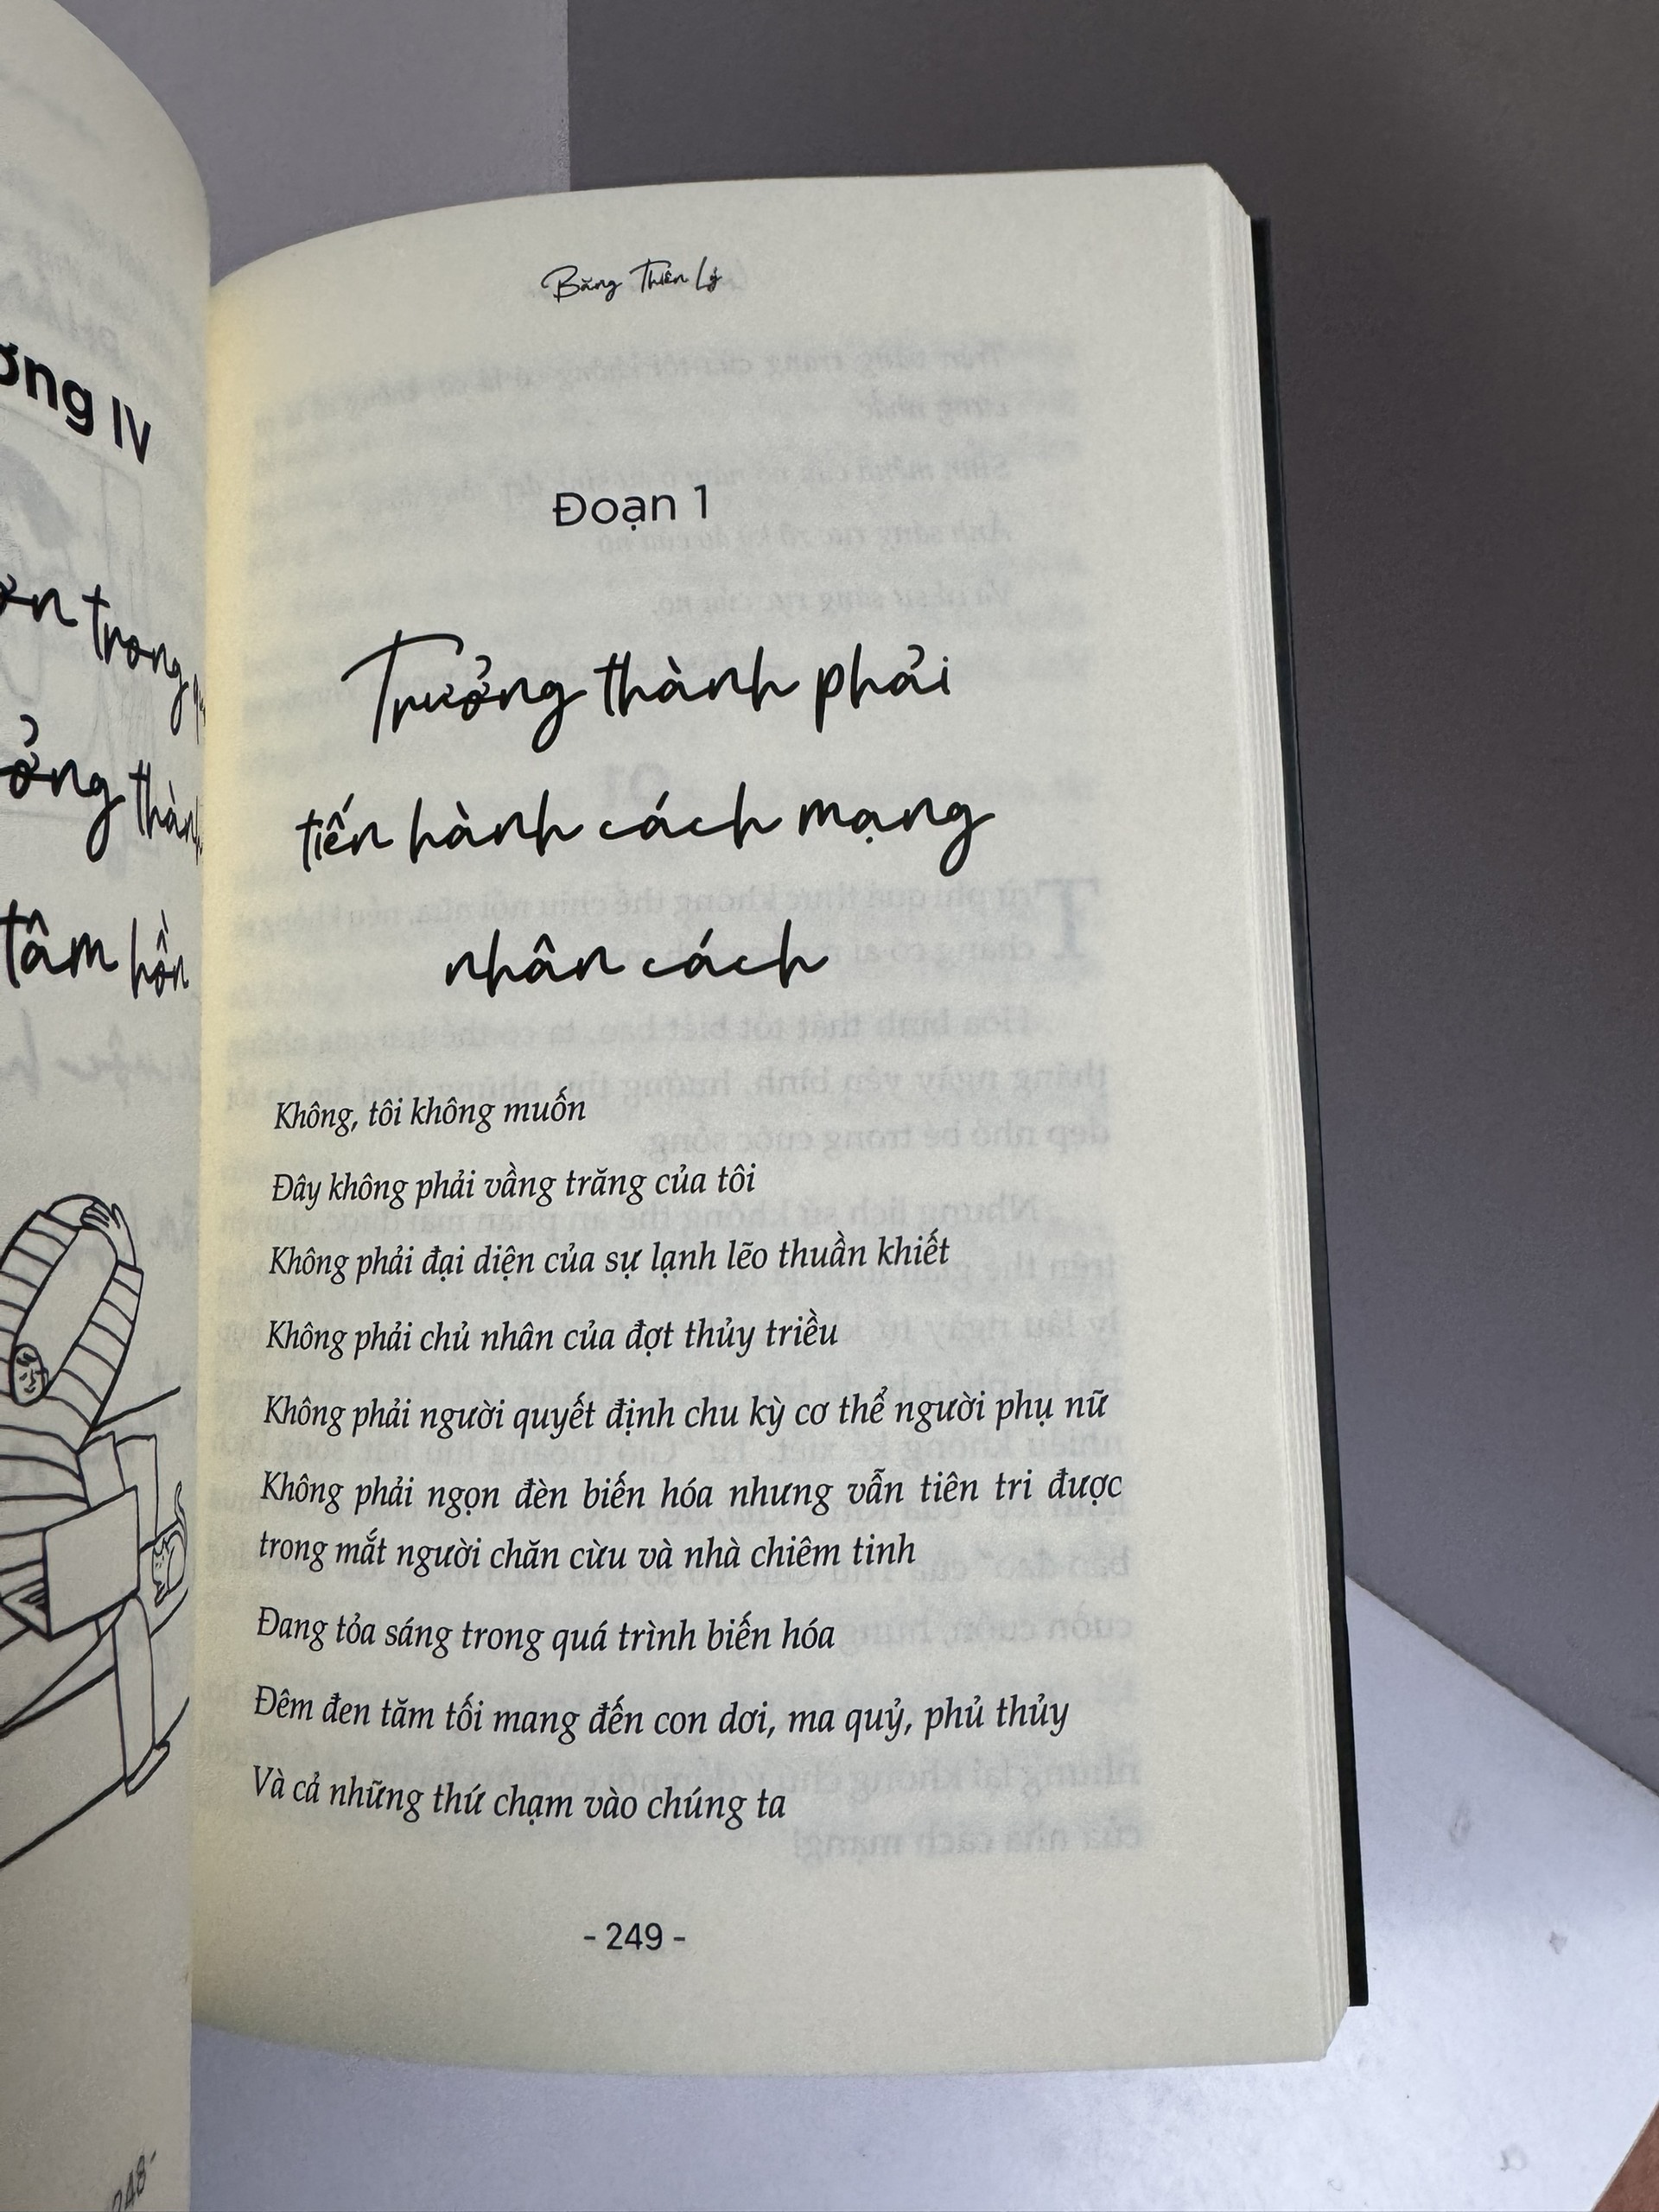 IV
trong
tâm hồn
Băng Thiên Lý
Đoạn 1
Trưởng thành phải
tiến hành cách mạng
nhân cách
Không, tôi không muốn
Đây không phải vầng trăng của tôi
Không phải đại diện của sự lạnh lẽo thuần khiết
Không phải chủ nhân của đợt thủy triều
Không phải người quyết định chu kỳ cơ thể người phụ nữ
Không phải ngọn đèn biến hóa nhưng vẫn tiên tri được
trong mắt người chăn cừu và nhà chiêm tinh
Đang tỏa sáng trong quá trình biến hóa
Đêm đen tăm tối mang đến con dơi, ma quỷ, phủ thủy
Và cả những thứ chạm vào chúng ta
- 249 -